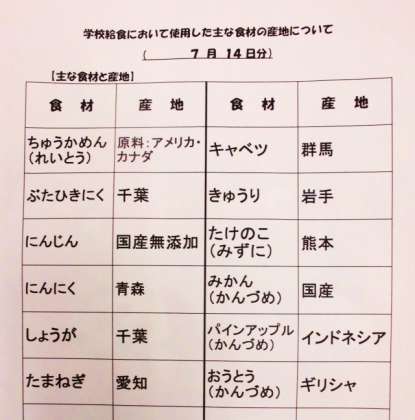 学校給食において使用した主な食材の産地について
（　　　7 月 14 日分）
【主な食材と産地】
食 材 産 地 食 材 産 地
ちゅうかめん
（れいとう）
原料：アメリカ・
カナダ
キャベツ 群馬
ぶたひきにく 千葉 きゅうり 岩手
にんじん 国産無添加
たけのこ
（みずに）
熊本
にんにく 青森
みかん
（かんづめ）
国産
しょうが 千葉
パインアップル
（かんづめ）
インドネシア
たまねぎ 愛知
おうとう
（かんづめ）
ギリシャ